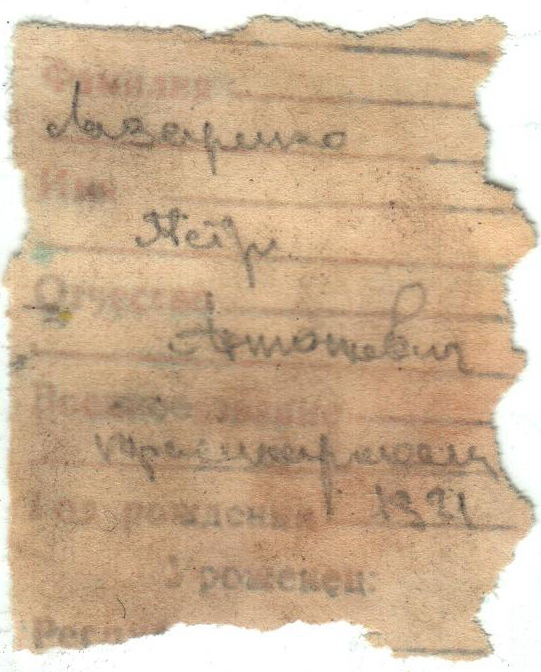 Фамилия
Лазаренко
Имя
Петр
Отчество
Антонович
Военное звание
красноармеец
Год рождения 1921
Уроженец:
Респ